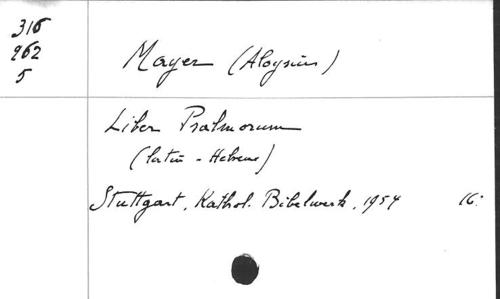 316
962
5
Mayer (Aloysius)
Liber Psalmorum
(latin - Hebreu)
Stuttgart, Kathol. Bibelwerk, 1954 16: